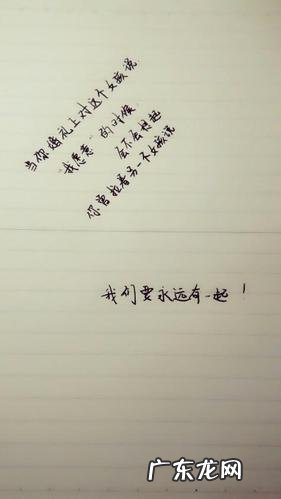 当你婚礼上对这个女孩说
"我愿意"的时候
会不会想起
你曾抱着另一个女孩说
我们要永远在一起！
广东龙网